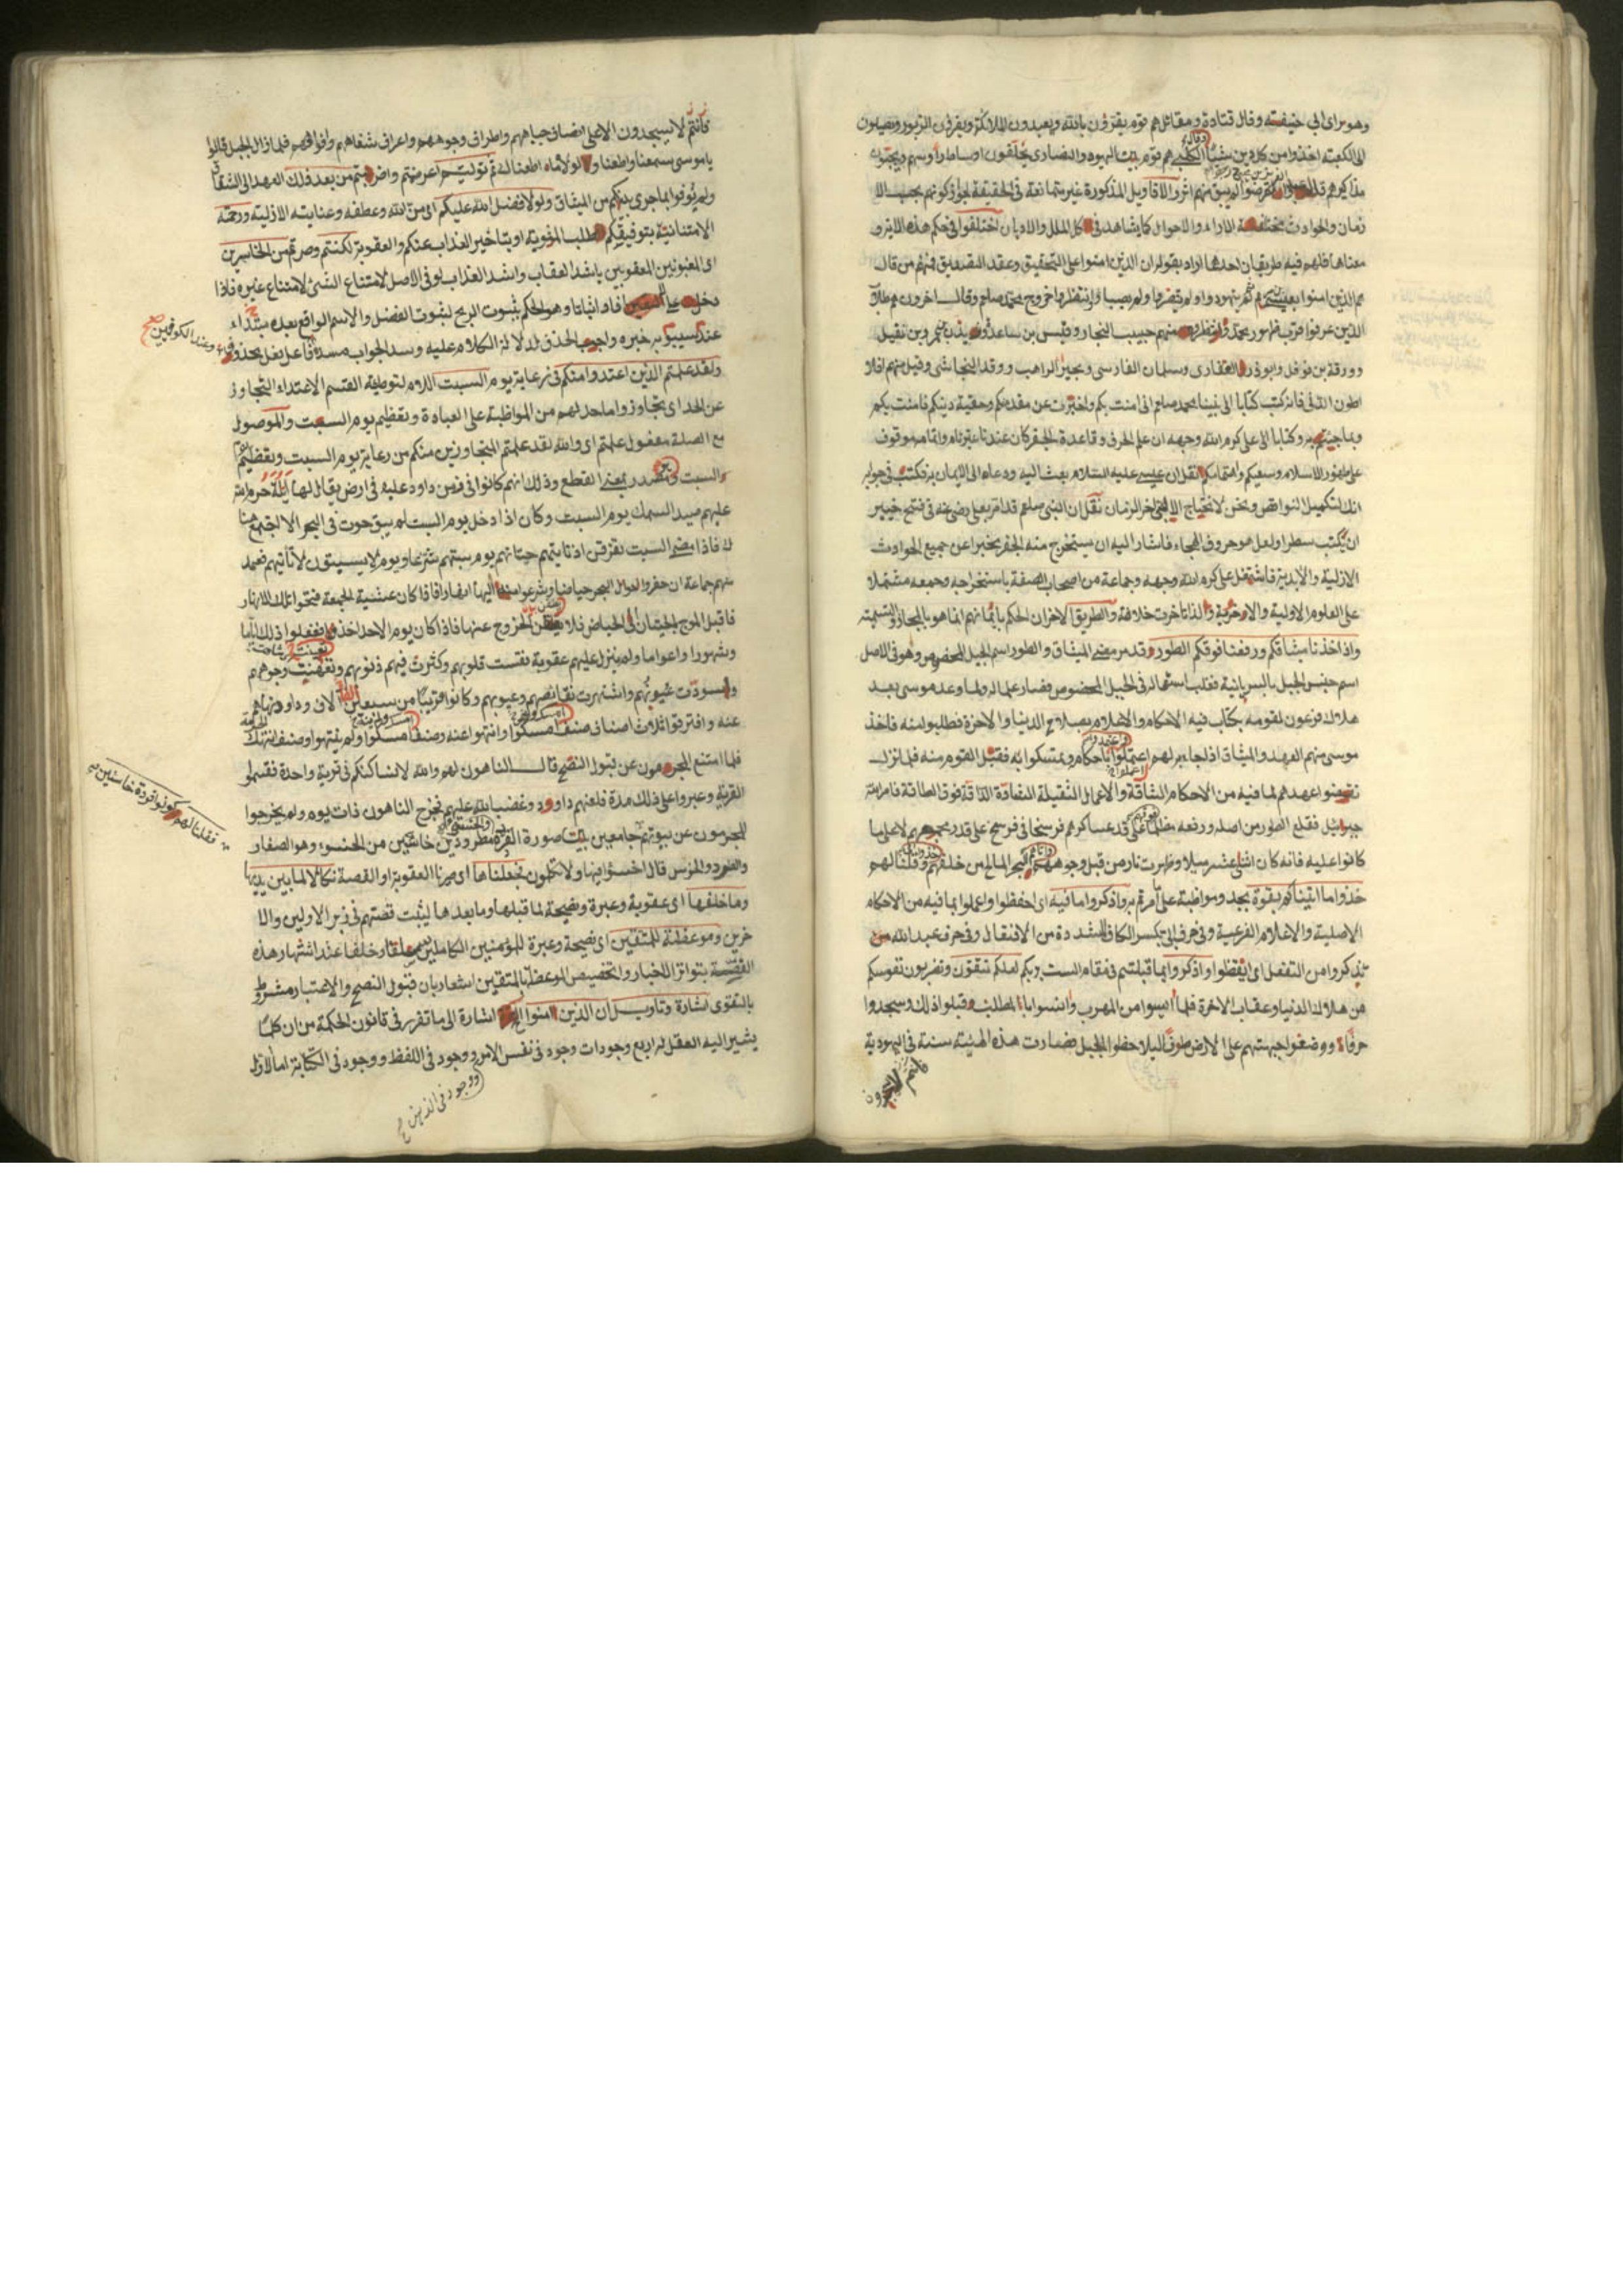 وهو رأى ابى حنيفة وقال قتادة ومقاتل هم قوم يقرؤن بالله ويعبدون الملائكة ويقرؤن الزبور ويصلون
الى الكعبة اخذوا من كل دين شيئا وقال الكلبى هم قوم بين اليهود والنصارى يحلقون اوساط رأوسهم ويجبون
مذاكيرهم
زمان والحوادث مختلفة الاراء والاحوال كما يشاهد فى كل الملل والاديان اختلفوا فى حكم هذه الاية و
معناها فلهم فيه طريقان احدها اراد بقوله ان الذين امنوا على التحقيق وعقد التصديق فمنهم من قال
هم الذين امنوا بعيسى ثم لم يتهودوا ولم ولم يصبأوا وانتظروا خروج محمد صلعم وقال اخرون هم طلاب
الدين منهم حبيب النجار وقيس بن ساعدة وزيد بن عمرو بن نفيل
وورقة بن نوفل وابو ذر الغفارى وسلمان الفارسى وبحير الراهب ووفد النجاشى وقيل منهم افلا
طون الذى فانه كتب كتابا الى نبينا محمد صلعم انى امنت بكم واخبرت عن مقدمكم وحقية دينكم فامنت بكم
وبما جئتم به وكتابا الى على كرم الله وجهه ان علم الحرف وقاعدة الجفر كان عندنا
على ظهور الاسلام وسعيكم واهتمامكم نقل ان عيسى عليه السلام بعث اليه ودعاه الى الايمان به فكتب فى جوابه
انك لتكميل النواقص ونحن لا نحتاج نقل ان النبى صلعم قد امر بعلى رضى عنه فى فتح خيبر
ان يكتب سطرا فاشار اليه ان يستخرج منه الجفر مخبرا عن جميع الحوادث
الازلية والابدية فاشتغل على كرم الله وجهه وجماعة من اصحاب الصفة باستخراجه وجمعه مشتملا
على العلوم الاولية والاخروية ولذا تاخرت خلافة والطريق الاخر ان الحكم بايمانهم انما هو بالمجاز والتسمية
واذ اخذنا ميثاقكم ورفعنا فوقكم الطور وقد مر معنى الميثاق والطور اسم الجبل المخصوص وهو فى الاصل
اسم جنس الجبل بالسريانية فغلب استعماله فى الجبل المخصوص فصار علما له ولما وعد موسى بعد
هلاك فرعون لقومه بكتاب فيه الاحكام والاعلام بصلاح الدنيا والاخرة فطلبوا منه فاخذ
موسى منهم العهد والميثاق اذا جاء به لهم اعتملوا باحكامه وتمسكوا به فقبل القوم منه فلما نزلت
نقضوا عهدهم لما فيه من الاحكام الشاقة والاعمال الثقيلة فوق الطاقة فامر الله
جبرائيل فقلع الطور من اصله ورفعه على قد عسكرهم فرسخا فى فرسخ على قدر لاعلى ما
كانوا عليه فانه كان اثنى عشر ميلا وظهرت نار من قبل وجوههم والبحر المالح من خلفهم وقلنا لهم
خذوا ما اتيناكم بقوة بجد ومواظبة على ما امرتم به واذكروا ما فيه اى احفظوا واعملوا بما فيه من الاحكام
الاصلية والاعلام الفرعية وفى حرف ابى بكسر الكاف المشددة من الافتعال وفى حرف عبد الله
تذكروا من التفعل اى اتعظوا واذكروا بما قبلتم فى مقام الست بربكم لعلكم تتقون
من هلاك الدنيا وعقاب الاخرة فلما ايسوا من المهرب قبلوا ذلك وسجدوا
ووضعوا جبهتهم على الارض طوفا ليلاحظوا الجبل فصارت هذه الهيئة سنة فى اليهودية
فانتم لا يسجدون الا على انصاف جباههم واطراف وجوههم واعراف شفاههم وافواههم فلما زال الجبل قالوا
يا موسى سمعنا واطعنا ولولاه ما اطعناك ثم توليتم اعرضتم من بعد ذلك العهد الى الشقاق
ولم يوفوا بما جرى بينكم من الميثاق ولولا فضل الله عليكم اى من الله وعطفه وعنايته الازلية ورحمته
الامتنانية بتوفيقكم لطلب او بتاخير العذاب عنكم والعقوبة لكنتم وصرتم من الخاسرين
اى المغبونين المعقوبين باشد العقاب واشد العذاب لو فى الاصل لامتناع الشئ لامتناع غيره فاذا
دخل على افاد اثباتا وهو الحكم بثبوت الربح لثبوت الفضل والاسم الواقع بعده مبتداء
عند سيبويه خبره واجب الحذف لدلالة الكلام عليه وسد الجواب مسده فاعل فعل محذوف
وعند الكوفيين صح
ولقد علمتم الذين اعتدوا منكم فى رعاية يوم السبت اللام لتوطية القسم الاعتداء التجاوز
عن الحد اى تجاوزوا ما حد لهم من المواظبة على العبادة وتعظيم يوم السبت والموصول
مع الصلة مفعول علمتم اى والله لقد علمتم المتجاوزين منكم من رعاية يوم السبت وتعظيم
والسبت مصدر بمعنى القطع وذلك انهم كانوا فى زمن داود عليه فى ارض يقال لها ايلة حرم الله
عليهم صيد السمك يوم السبت وكان اذا دخل يوم السبت لم يبق حوت فى البحر الا اجتمع هنا
ك فاذا مضى السبت تفرقن اذ تأتيهم حيتانهم يوم سبتهم شرعا ويوم لا يسبتون لا تأتيهم فعمد
منهم جماعة ان حفروا حول البحر حياضا وشرعوا منها اليها انهارا فاذا كان عشية الجمعة فتحوا تلك الانهار
فاقبل الموج بالحيتان الى الحياض فلا يطقن الخروج عنها فاذا كان يوم الاحد اخذوها ففعلوا ذلك اياما
وشهورا واعواما ولم ينزل عليهم عقوبة فقست قلوبهم وكثرت فيهم ذنوبهم وجوههم
واسودت عيونهم واشتهرت نقايصهم وعيوبهم وكانوا قريبا من سبعين الفا
عنه وافترقوا ثلاث اصناف صنف امسكوا وانتهوا عنه وصنف امسكوا ولم ينتهوا وصنف انتهك الحرمة
فلما امتنع المجرمون عن قبول النصح قال الناهون لهم والله لانساكنكم فى قرية واحدة فقسموا
القرية وعبروا على ذلك مدة فلعنهم داوود وغضب الله عليهم فخرج الناهون ذات يوم ولم يخرجوا
فقلنا لهم كونوا قردة خاسئين
المجرمون عن بيوتهم جامعين بين صورة القردة مطرودين خاسئين من الخسوء وهو الصغار
والطرد قال اخسؤا فيها ولا تكلمون فجعلناها اى صيرنا العقوبة او القصة نكالا لما بين يديها
وما خلفها اى عقوبة وعبرة وفضيحة لما قبلها وما بعدها ليثبت قصتهم فى زبر الاولين والا
خرين وموعظة للمتقين اى نصيحة وعبرة للمؤمنين الكاملين سلفا وخلفا عند اشتهار هذه
القصة بتواتر الاخبار وتخصيص الموعظة بالمتقين اشعار بان قبول النصح والاعتبار مشروط
بالتقوى اشارة وتاويل ان الذين امنوا الخ اشارة الى ما تقرر فى قانون الحكمة من ان كلما
يشير اليه العقل له اربع وجودات وجود فى نفس الامر ووجود فى اللفظ ووجود فى الكتابة اما الاول
ووجود فى الذهن صح